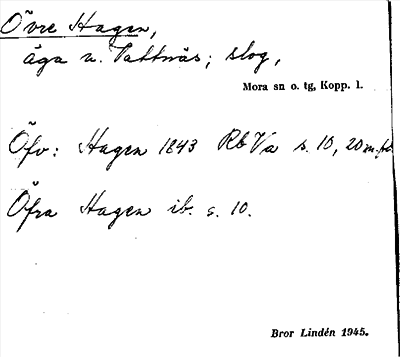 Övre Hagen,
äga n. Vattnäs; slog,
Mora sn o. tg, Kopp. l.
Öfv: Hagen 1843 Rb Va s. 10, 20 m.fl.
Öfra Hagen ib. s. 10.
Bror Lindén 1945.